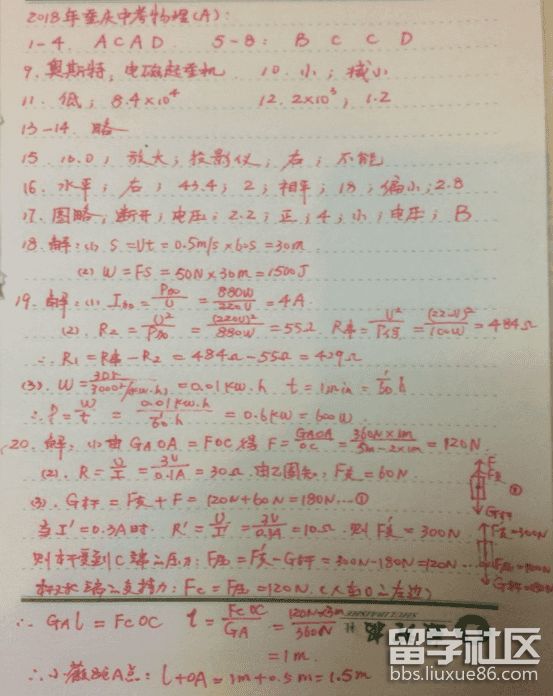 2018年重庆中考物理(A):
1-4. A C A D 5-8: B C C D
9. 奥斯特, 电磁起重机 10. 小; 减小
11. 低; 8.4×10⁴ 12. 2×10³; 1.2
13-14. 略
15. 10.0; 放大; 投影仪; 右; 不能
16. 水平; 右; 43.4; 2; 相平; 18; 偏小; 2.8
17. 图略; 断开; 电压; 2.2; 正; 4; 小; 电压; B
18. 解: (1) S=Vt=0.5m/s×60s=30m
(2) W=FS=50N×30m=1500J
19. 解: (1) I=P/U=880W/220V=4A
(2). R₂=U²/P=(220V)²/880W=55Ω R串=U²/P=(220V)²/100W=484Ω
∴ R₁=R串-R₂=484Ω-55Ω=429Ω
(3). W=30r/3000r/(kw·h)=0.01kw·h t=1min=1/60 h
∴ P=W/t=0.01kw·h/(1/60 h)=0.6kw=600W
20. 解: (1) 由GAOA=FOC得 F=GAOA/OC=360N×1m/5m-2×1m=120N
(2). R=U/I=3V/0.1A=30Ω 由乙图知: F支=60N
(3). G杆=F支+F=120N+60N=180N...①
当I'=0.3A时. R'=U/I'=3V/0.3A=10Ω. 则F'支=300N
则杆受到C端之压力: F压=F'支-G杆=300N-180N=120N
F支 G杆 F'支=300N F压=120N G杆=180N
Fc=F压=120N (人在O之左边)
∴ GA l=Fc OC l=Fc OC/GA=120N×3m/360N
=1m
∴ A点: l+OA=1m+0.5m=1.5m
留学社区
bbs.liuxue86.com